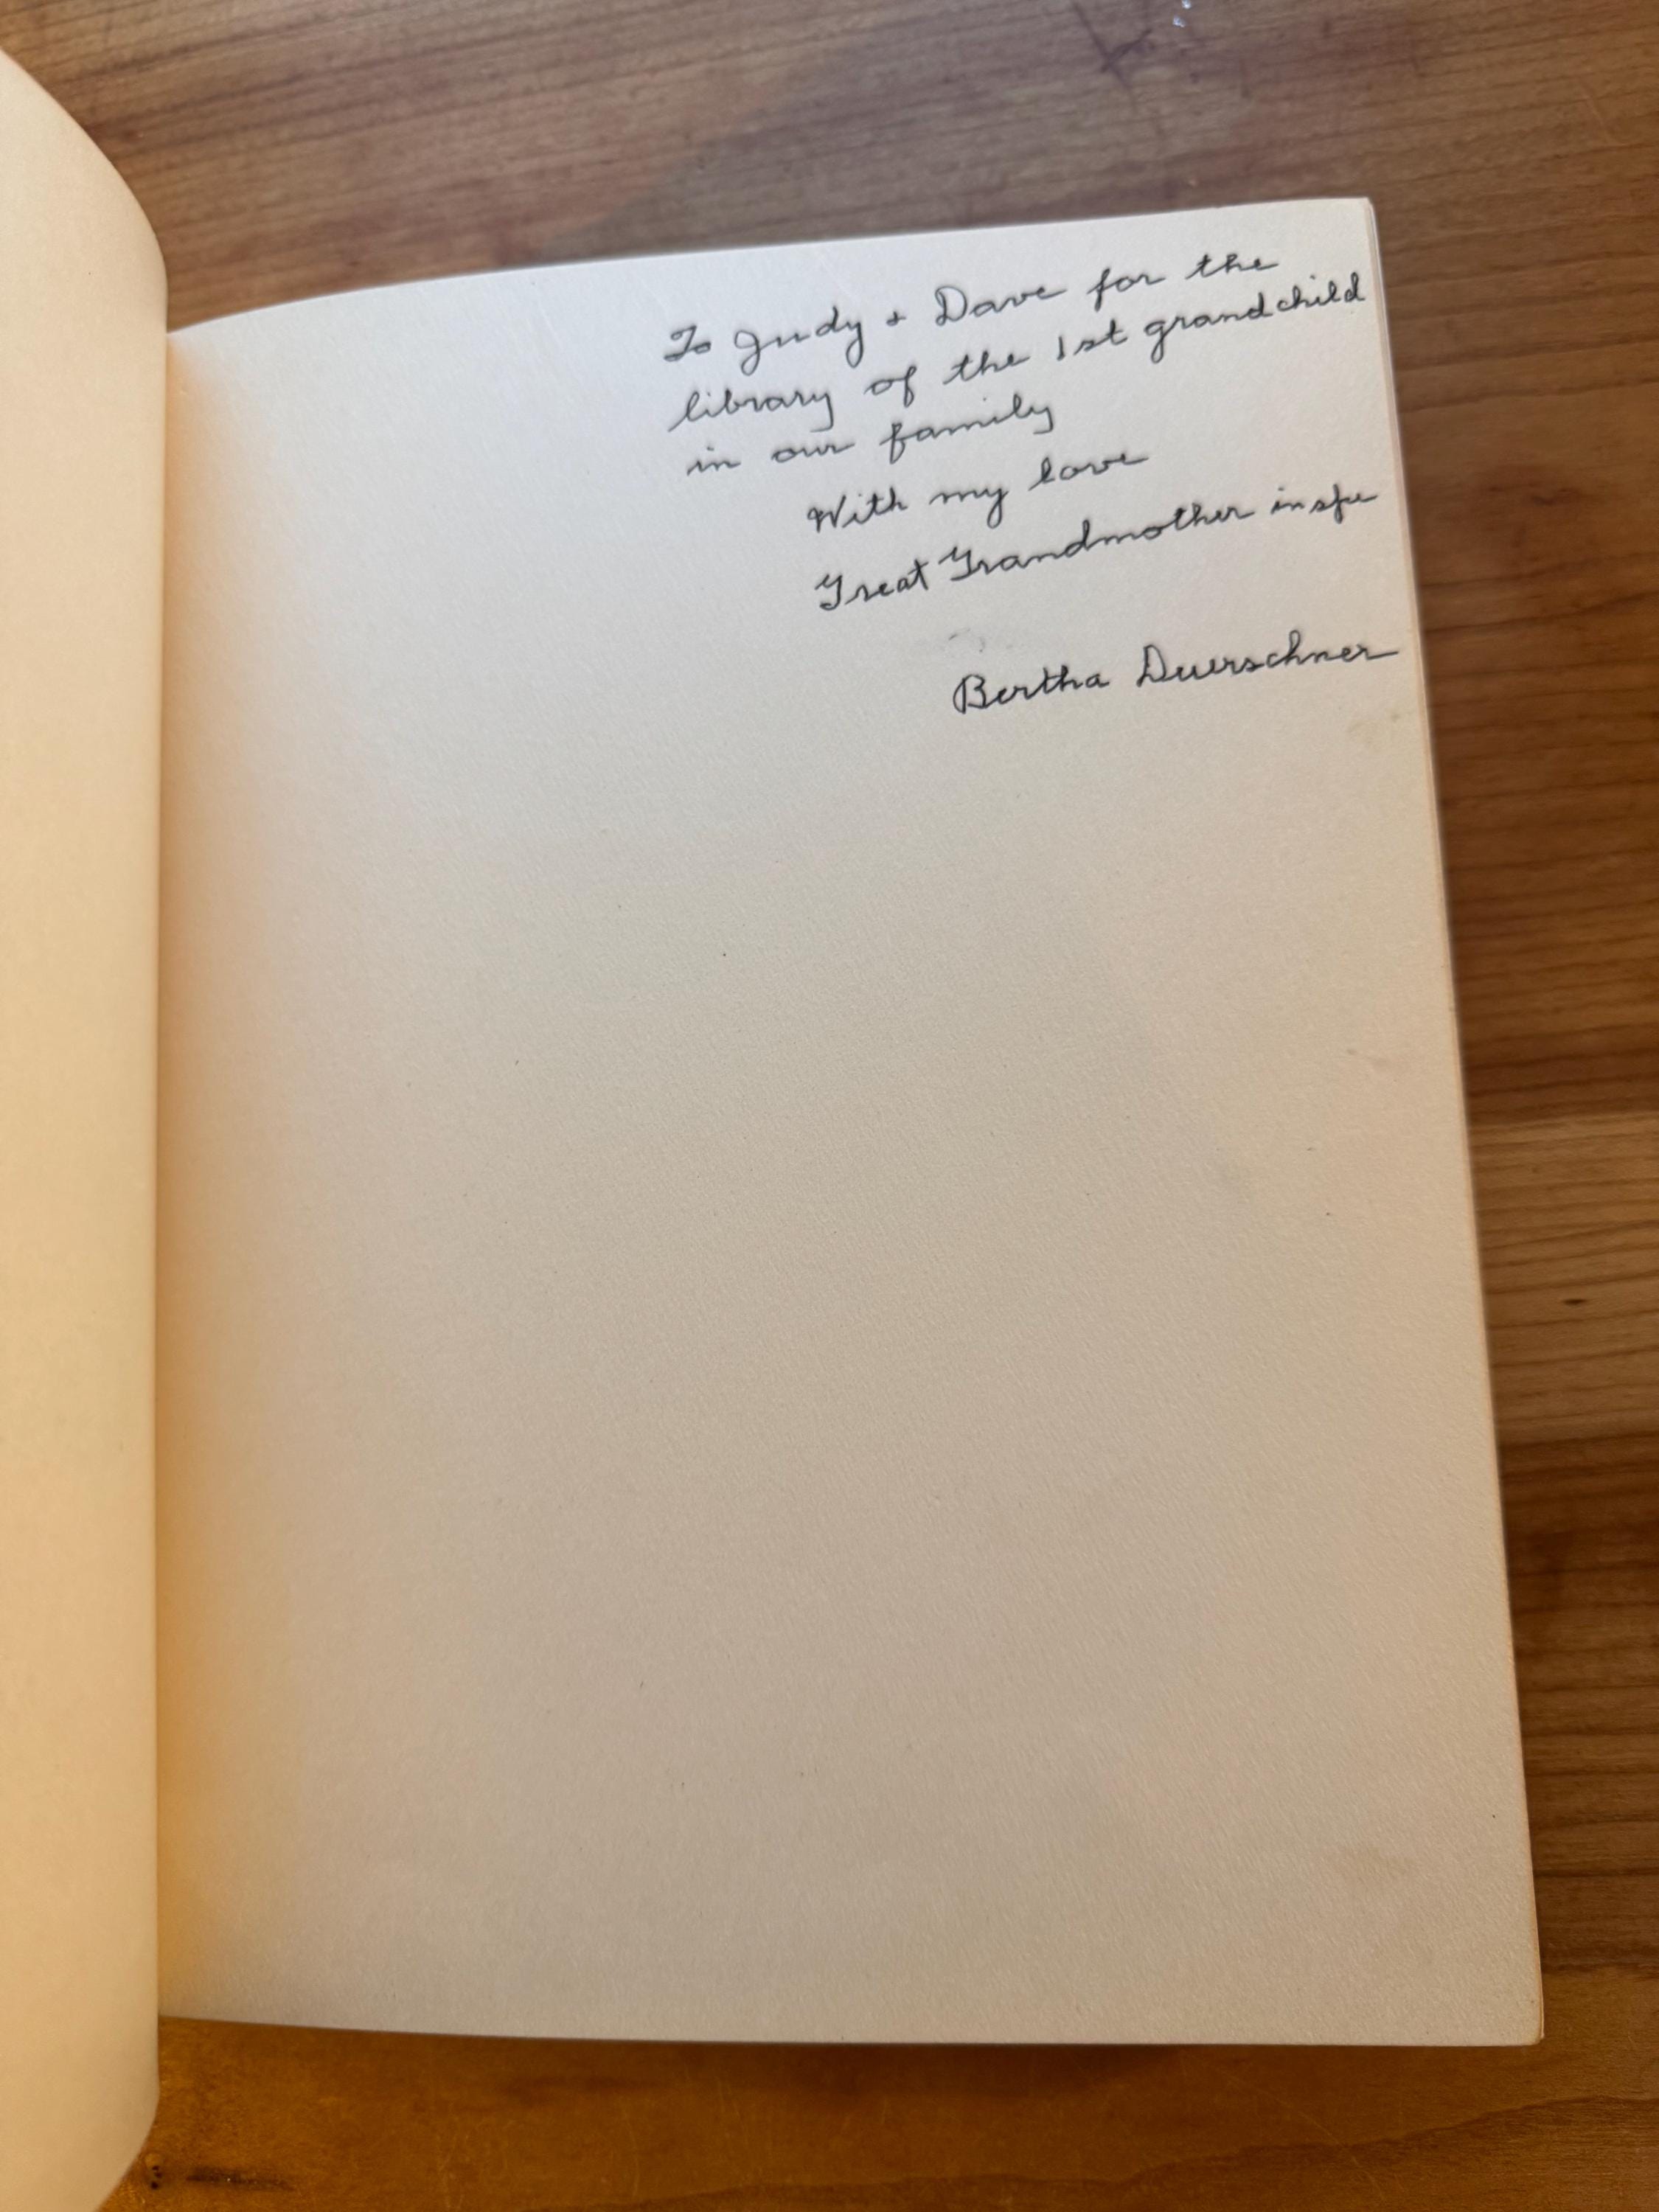 To Judy + Dave for the
library of the 1st grandchild
in our family
With my love
Great Grandmother in spe
Bertha Duerschner